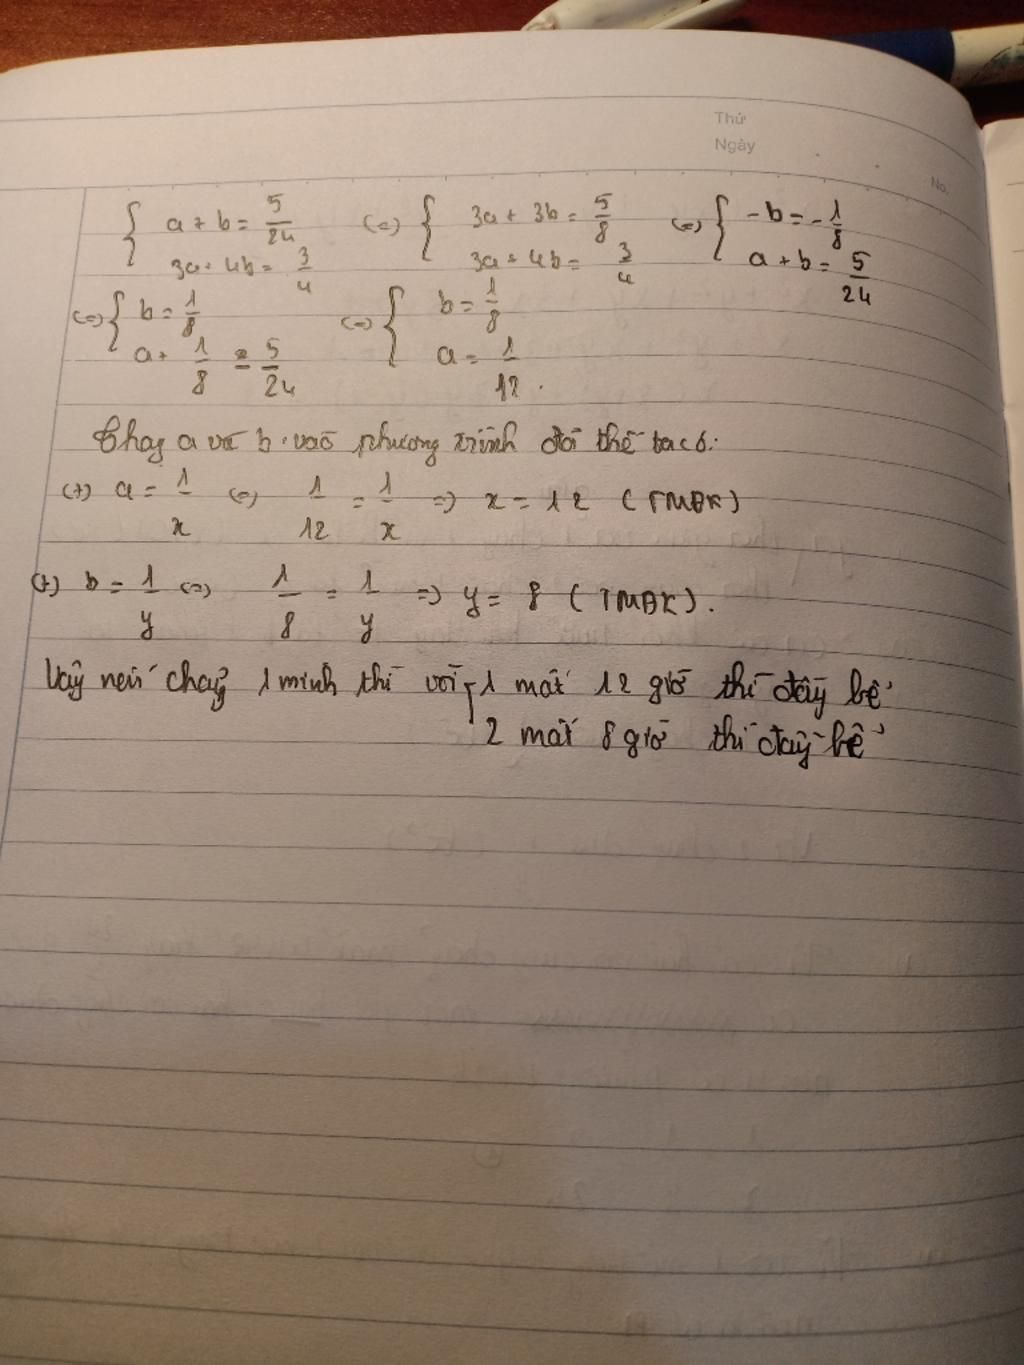 Thứ
Ngày
No.
{ a + b = 5/24 (=) { 3a + 3b = 5/8 (=) { -b = -1/8
3a + 4b = 3/4 3a + 4b = 3/4 a + b = 5/24
(=) { b = 1/8 (=) { b = 1/8
a + 1/8 = 5/24 a = 1/12 .
Thay a và b vào phương trình đổi thế ta có:
(+) a = 1/x (=) 1/12 = 1/x => x = 12 (TMĐK)
(+) b = 1/y (=) 1/8 = 1/y => y = 8 (TMĐK).
Vậy nếu chảy 1 mình thì vòi 1 mất 12 giờ thì đầy bể
2 mất 8 giờ thì đầy bể